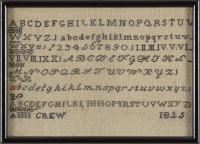 ABCDEFGHIKLMNOPQRSTUV
WXYZ abcdefghiklmnopqrstuv
wxyz 1234567890 I.II.III.IV.V.VI.
VII.VIII.IX.X ABCDEFGHIK
MNOPQRSTUVWXYZ
abcdefghiklmnopqrstuvwxyz
ABCDEFGHIKLMNOPQRSTUVWXYZ
CREW 1825